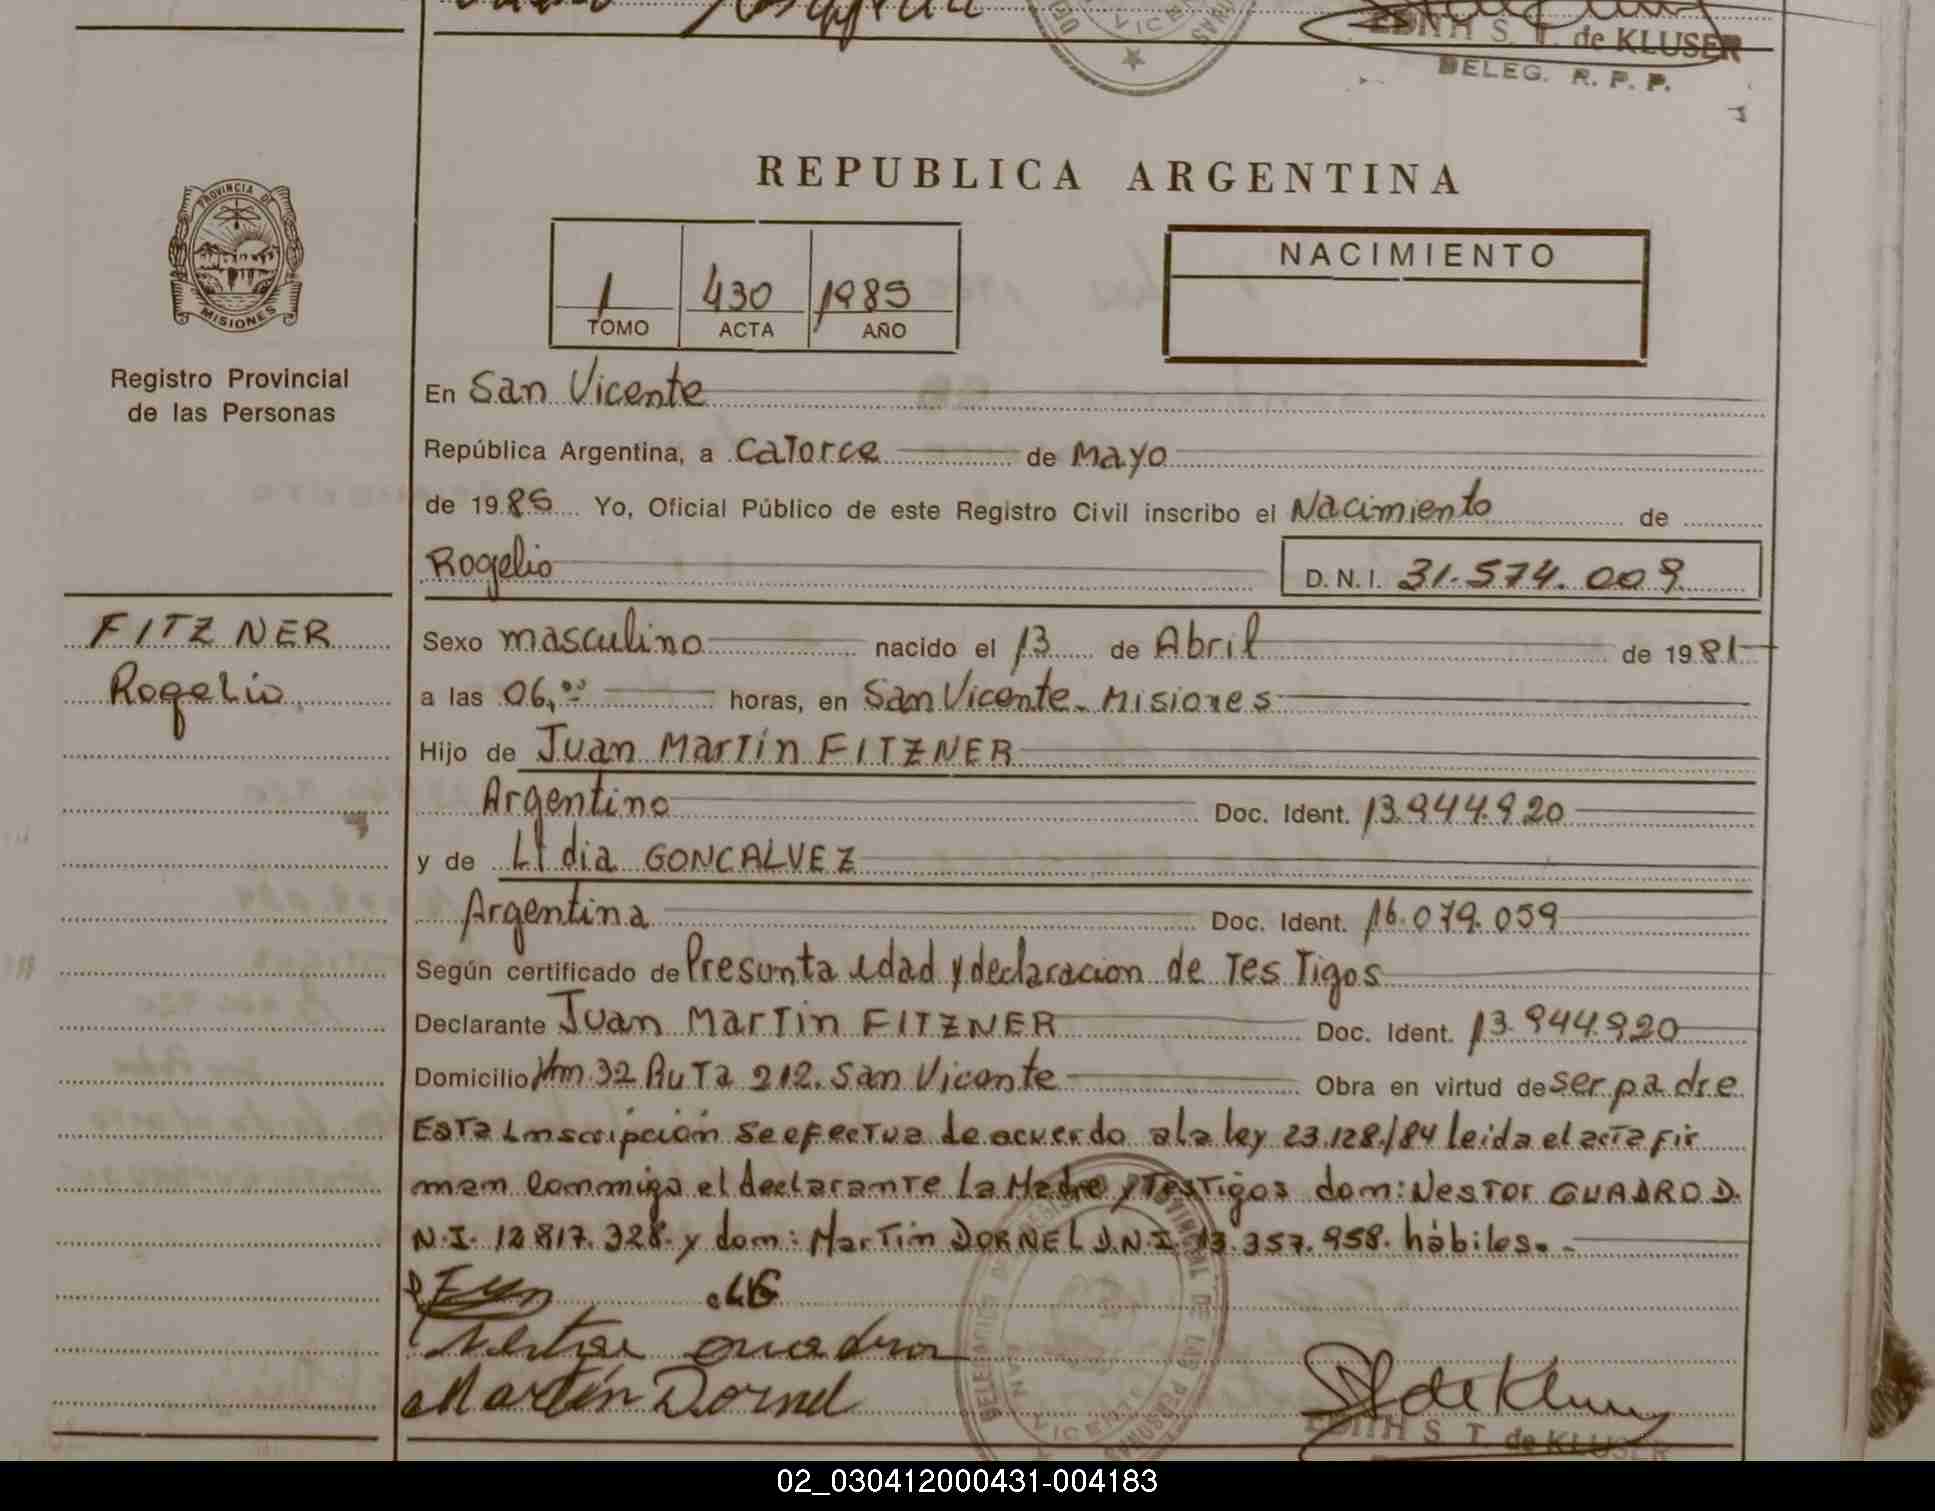 EDITH S. T. de KLUSER
DELEG. R. P. P.
REPUBLICA ARGENTINA
PROVINCIA DE
MISIONES
Registro Provincial
de las Personas
1 430 1985
TOMO ACTA AÑO
NACIMIENTO
En San Vicente
República Argentina, a Catorce de Mayo
de 1985 Yo, Oficial Público de este Registro Civil inscribo el Nacimiento de
Rogelio D.N.I. 31.574.009
FITZNER
Rogelio
Sexo masculino nacido el 13 de Abril de 1981
a las 06,00 horas, en San Vicente - Misiones
Hijo de Juan Martin FITZNER
Argentino Doc. Ident. 13.944.920
y de Lidia GONCALVEZ
Argentina Doc. Ident. 16.079.059
Según certificado de Presunta edad y declaracion de Testigos
Declarante Juan Martin FITZNER Doc. Ident. 13.944.920
Domicilio Km 32 Ruta 212. San Vicente Obra en virtud de ser padre
Esta Inscripción se efectua de acuerdo a la ley 23.128/84 leida el acta fir
man conmigo el declarante la Madre y Testigos don: Nestor CUADRO D.
N.I. 12.817.328. y don: Martin DORNEL D.N.I. 13.357.958. hábiles.-
LG
Nestor cuadro
Martín Dornel
EDITH S. T. de KLUSER
02_030412000431-004183